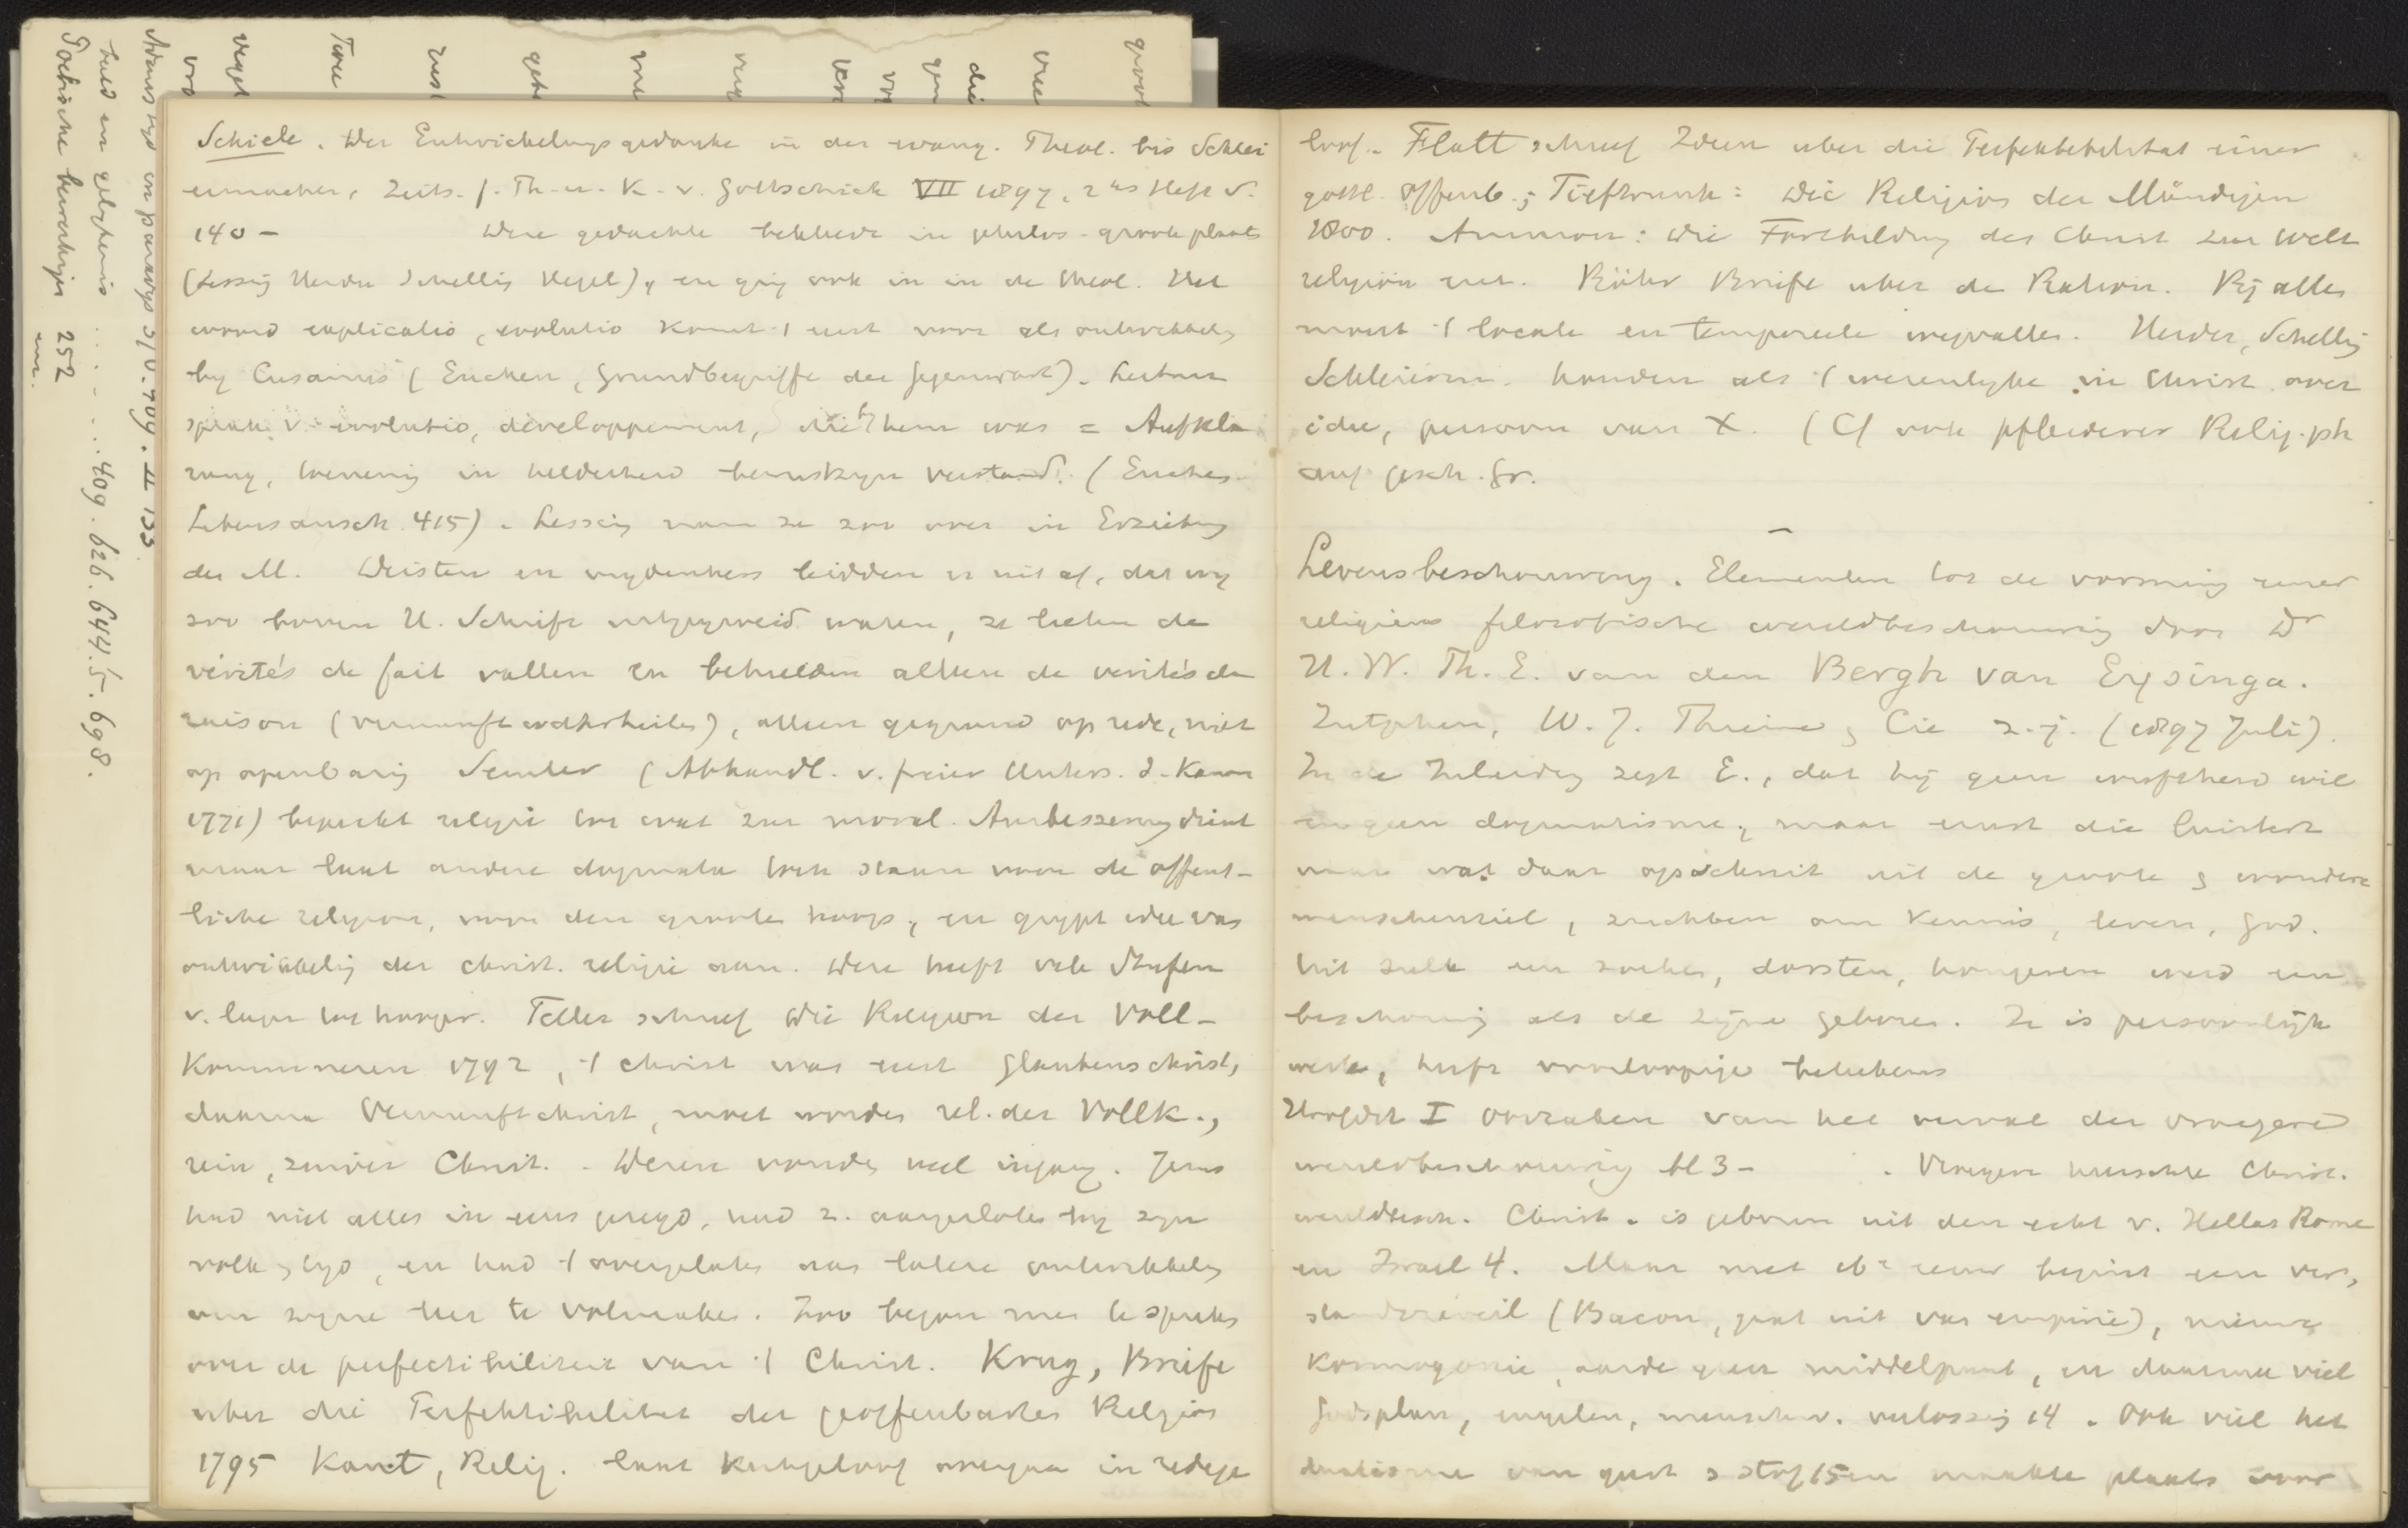 Schiele. Der Entwickelungsgedanke in der evang. Theol. bis Schlei
ermacher, Zeits. f. Th. u. K. v. Gottschick VII 1897, 2tes Heft S.
140 - Deze gedachte bekleedt in philos. groote plaats
(Lessing Herder Schelling Hegel), en ging ook in in de theol. Het
woord explicatio, evolutio komt 't eerst voor als ontwikkeling
by Cusanus (Eucken, Grundbegriffe der Gegenwart). Leibniz
sprak v. evolutio, développement, die by hem was = Aufkla
rung, toeneming in helderheid bewustzyn verstand. (Eucken
Lebensansch. 415). Lessing nam ze zoo over in Erziehung
des M. Deisten en wydenkers leidden er uit af, dat wy
zoo boven H. Schrift uitgegroeid waren, ze lieten de
vérités de fait vallen en behielden alleen de verités de
raison (vernunftwahrheiten), alleen gegrond op rede, niet
op openbaring Semler (Abhandl. v. freier Unters. d. Kanon
1771) beperkt religie tot wat zur moral. Ausbesserung dient
maar laat andere dogmata toch staan voor de offent-
liche religion, voor den grooten hoop, en grypt idee van
ontwikkeling der christ. religie aan. Deze heeft vele Stufen
v. lager tot hooger. Teller schreef Die Religion der Voll-
kommneren 1792, 't Christ was eerst Glaubenschrist,
daarna Vernunftchrist, moet worden rel. der Vollk.,
rein, zuiver Christ. - Deze vonden veel ingang. Jezus
had niet alles in eens gezegd, had z. aangesloten by zyn
volk & tyd, en had 't overgelaten aan latere ontwikkeling
om zyne leer te volmaken. Zoo begon men te spreken
over de perfectibiliteit van 't Christ. Krug, Briefe
uber die Perfektibilitat der geoffenbarten Religion
1795 Kant, Relig. laat kerkgeloof overgaan in redege
loof. Flatt schreef Ideen uber die Perfektibilitat einer
gottl. Offenb.; Tieftrunk: Die Religion der Mündigen
1800. Ammon: Die Fortbildung des Christ zur Welt
religion enz. Röhr Briefe uber den Ration. Bij allen
moest 't locale en temporeele wegvallen. Herder, Schelling
Schleierm. houden als 't wezenlyke in Christ. over
idee, persoon van X. (Cf ook Pfleiderer Relig. ph
auf gesch. Gr.
Levensbeschouwing. Elementen tot de vorming eener
religieus filosofische wereldbeschouwing door Dr
H. W. Ph. E. van den Bergh van Eysinga.
Zutphen, W. J. Thieme & Cie z.j. (1897 Juli).
In de Inleiding zegt E., dat hij geen twyfelend wil
en geen dogmatisme, maar ernst die luistert
naar wat daar opschreit uit de groote & wondere
menschenziel, zuchten om kennis, leven, God.
Uit zulk een zoeken, dorsten, hongeren werd een
beschouwing als de zijne geboren. Ze is persoonlijk
werk, heeft voorloopige beteekenis
Hoofdst I Oorzaken van het verval der vroegere
wereldbeschouwing bl 3 - . Vroeger heerschte Christ.
wereldbesch. Christ. is geboren uit den echt v. Hellas Rome
en Israel 4. Maar met 16e eeuw begint een ver,
standsréveil (Bacon, gaat uit van empirie), nieuwe
kosmogonie, aarde geen middelpunt, en daarmee viel
Godsplan, engelen, mensch w. verlossing 14. Ook viel het
dualisme van geest & stof 15 en maakte plaats voor
groot
vree
die
gen
vo
vers
veeg
me
gebe
eerst
Toen
vergel
voo
Adams tyd en paradys 310. 409. II 133
beeld en gelykenis ...... 409. 626. 644.5. 698.
252
enz.